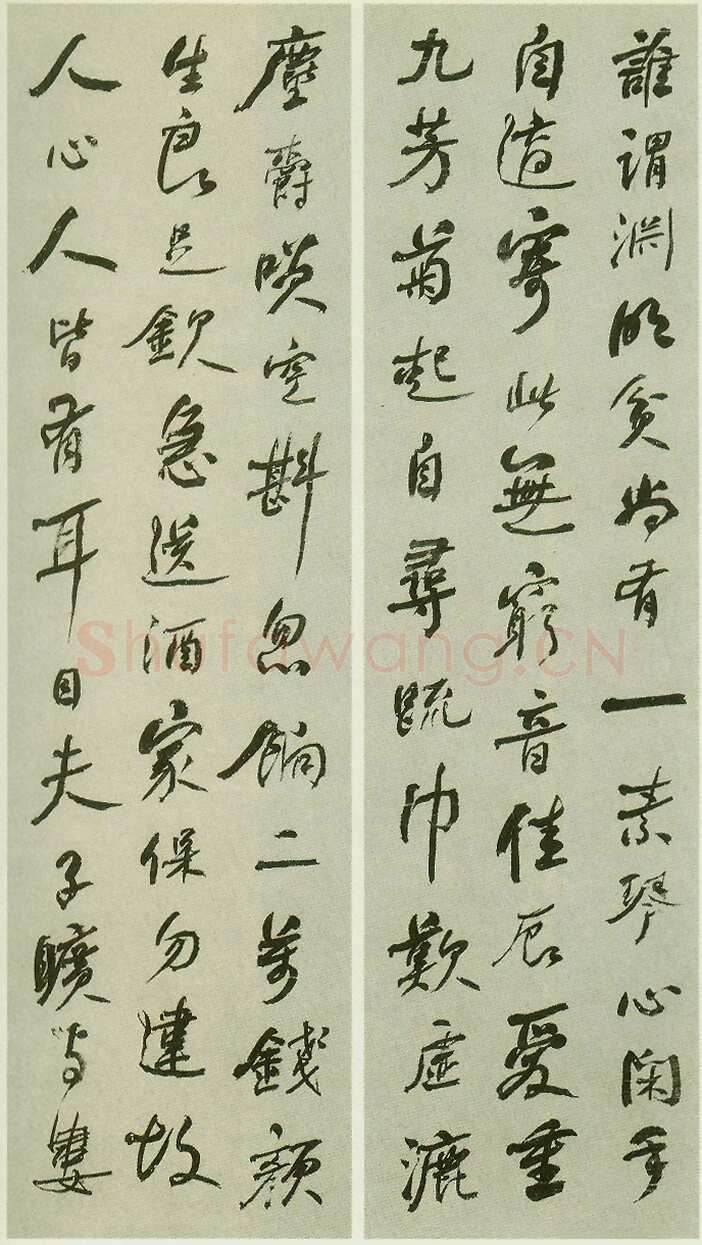 誰謂淵明貧尚有一素琴心閑手
自適寄此無窮音佳辰愛重
九芳菊起自尋疏巾歎虛漉
塵爵嘆空斟忽餉二萬錢顏
生良足欽急送酒家保勿違故
人心人皆有耳目夫子曠與婁
Shufawang.CN